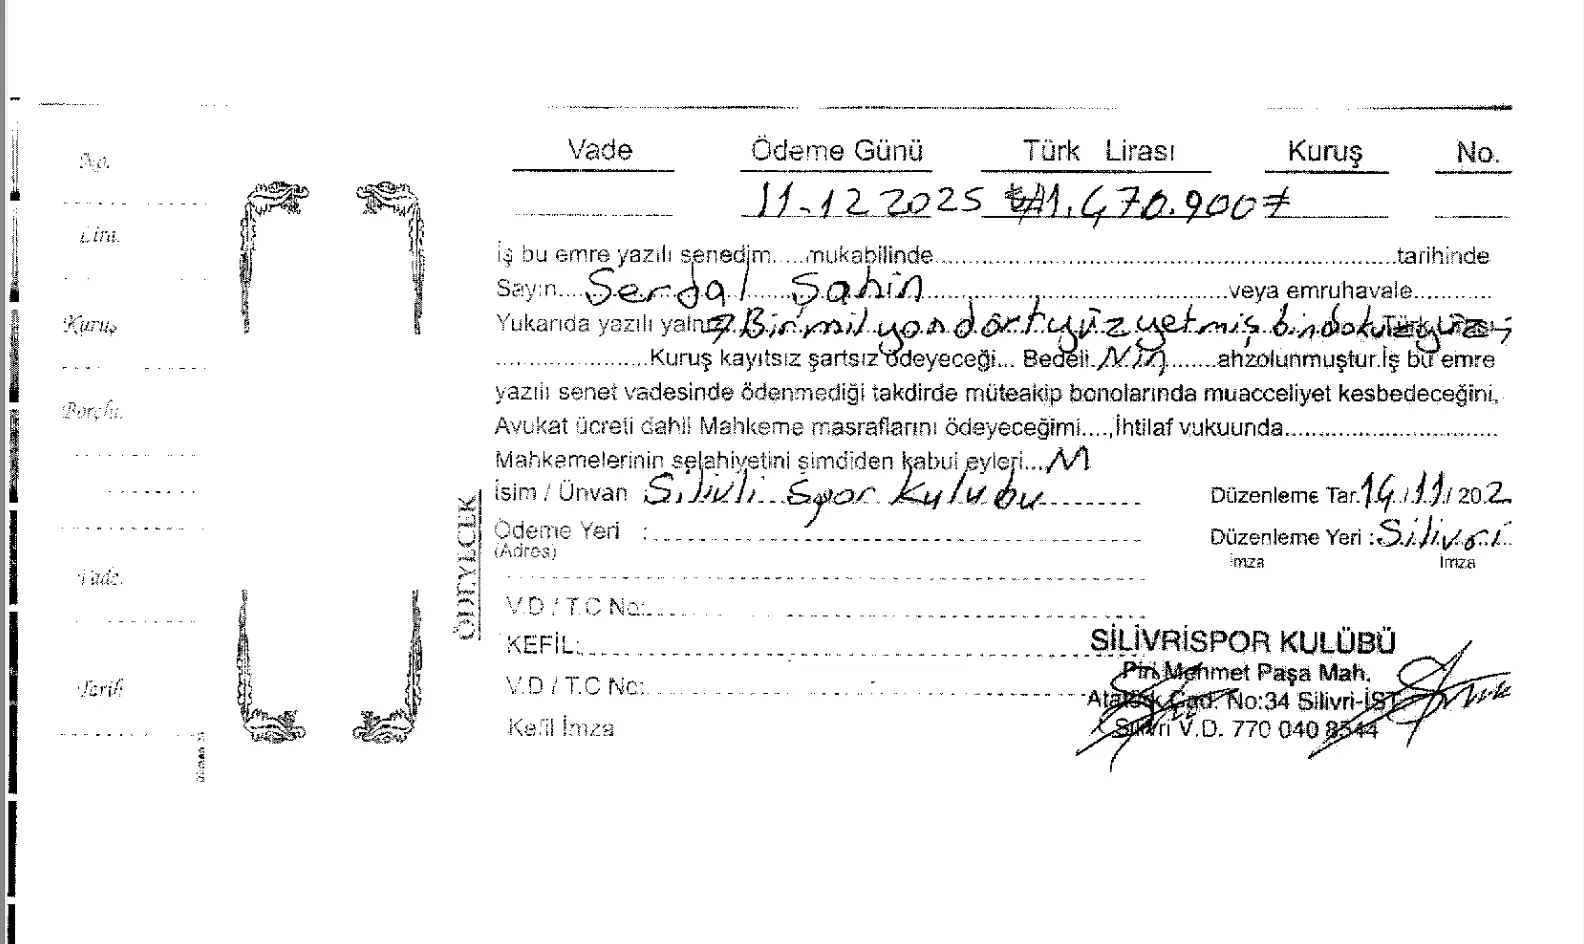 No.
Lira.
Kuruş
Borçlu.
Vade.
Tarih
Vade Ödeme Günü Türk Lirası Kuruş No.
11-12 2025 ₺#1.470.900#
İş bu emre yazılı senedim.....mukabilinde..........tarihinde
Sayın....Serdal Şahin..........veya emruhavale..........
Yukarıda yazılı yalnız #Birmilyondörtyüzyetmişbindokuzyüz
..........Kuruş kayıtsız şartsız ödeyeceği... Bedeli.Nin.......ahzolunmuştur.İş bu emre
yazılı senet vadesinde ödenmediği takdirde müteakip bonolarında muacceliyet kesbedeceğini,
Avukat ücreti dahil Mahkeme masraflarını ödeyeceğimi....,İhtilaf vukuunda..........
Mahkemelerinin selahiyetini şimdiden kabul eyleri...M
İsim / Ünvan Silivli Spor Kulubu
Düzenleme Tar.14/11/202
Ödeme Yeri :
(Adres)
Düzenleme Yeri : Silivri
İmza İmza
ÖDEYECEK
V.D / T.C No:
KEFİL:
V.D / T.C No:
Kefil İmza
SİLİVRİSPOR KULÜBÜ
Piri Mehmet Paşa Mah.
Atatürk Cad. No:34 Silivri-İST
Silivri V.D. 770 040 8544